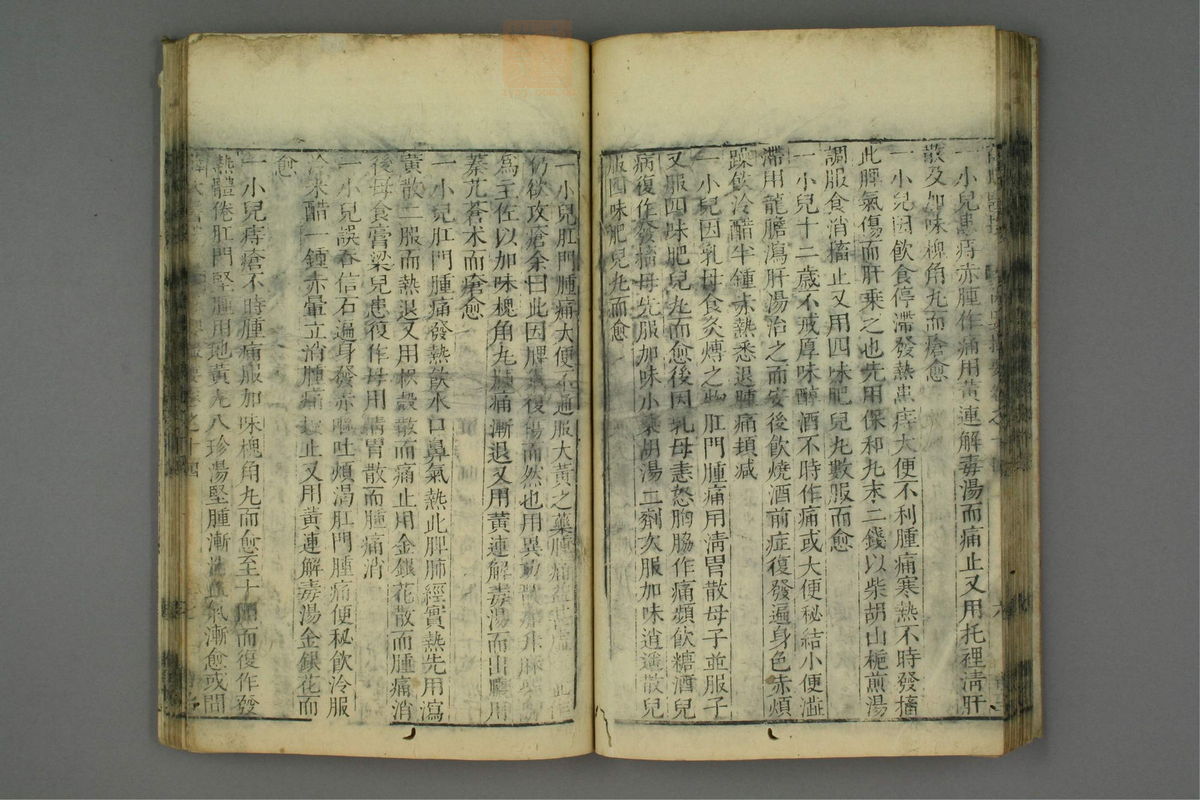 一小兒患痔赤腫作痛用黃連解毒湯而痛止又用托裡清肝
散及加味槐角丸而瘡愈
一小兒因飲食停滯發熱患痔大便不利腫痛寒熱不時發搐
此脾氣傷而肝乘之也先用保和丸末二錢以柴胡山梔煎湯
調服食消搐止又用四味肥兒丸數服而愈
一小兒十二歲不戒厚味醇酒不時作痛或大便秘結小便澁
滯用龍膽瀉肝湯治之而安後飲燒酒前症復發遍身色赤煩
躁飲冷醋半鍾赤熱悉退腫痛頓減
一小兒因乳母食炙煿之物肛門腫痛用清胃散母子並服子
又服四味肥兒丸而愈後因乳母恚怒胸脇作痛頻飲糖酒兒
病復作發搐母先服加味小柴胡湯二劑次服加味逍遙散兒
服四味肥兒丸而愈
一小兒肛門腫痛大便不通服大黃之藥腫痛
仍欲攻瘡余曰此因脾氣復傷而然也用異功散
為主佐以加味槐角丸腫痛漸退又用黃連解毒湯而出膿用
秦艽蒼术而瘡愈
一小兒肛門腫痛發熱飲水口鼻氣熱此脾肺經實熱先用瀉
黃散二服而熱退又用枳殼散而痛止用金銀花散而腫痛消
後母食膏梁兒患復作母用清胃散而腫痛消
一小兒誤吞信石遍身發赤嘔吐煩渴肛門腫痛便秘飲冷服
冷米醋一鍾赤暈立消腫痛止又用黃連解毒湯金銀花而
愈
一小兒痔瘡不時腫痛服加味槐角丸而愈至十四而復作發
熱體倦肛門堅腫用地黃丸八珍湯堅腫漸氣漸愈或間